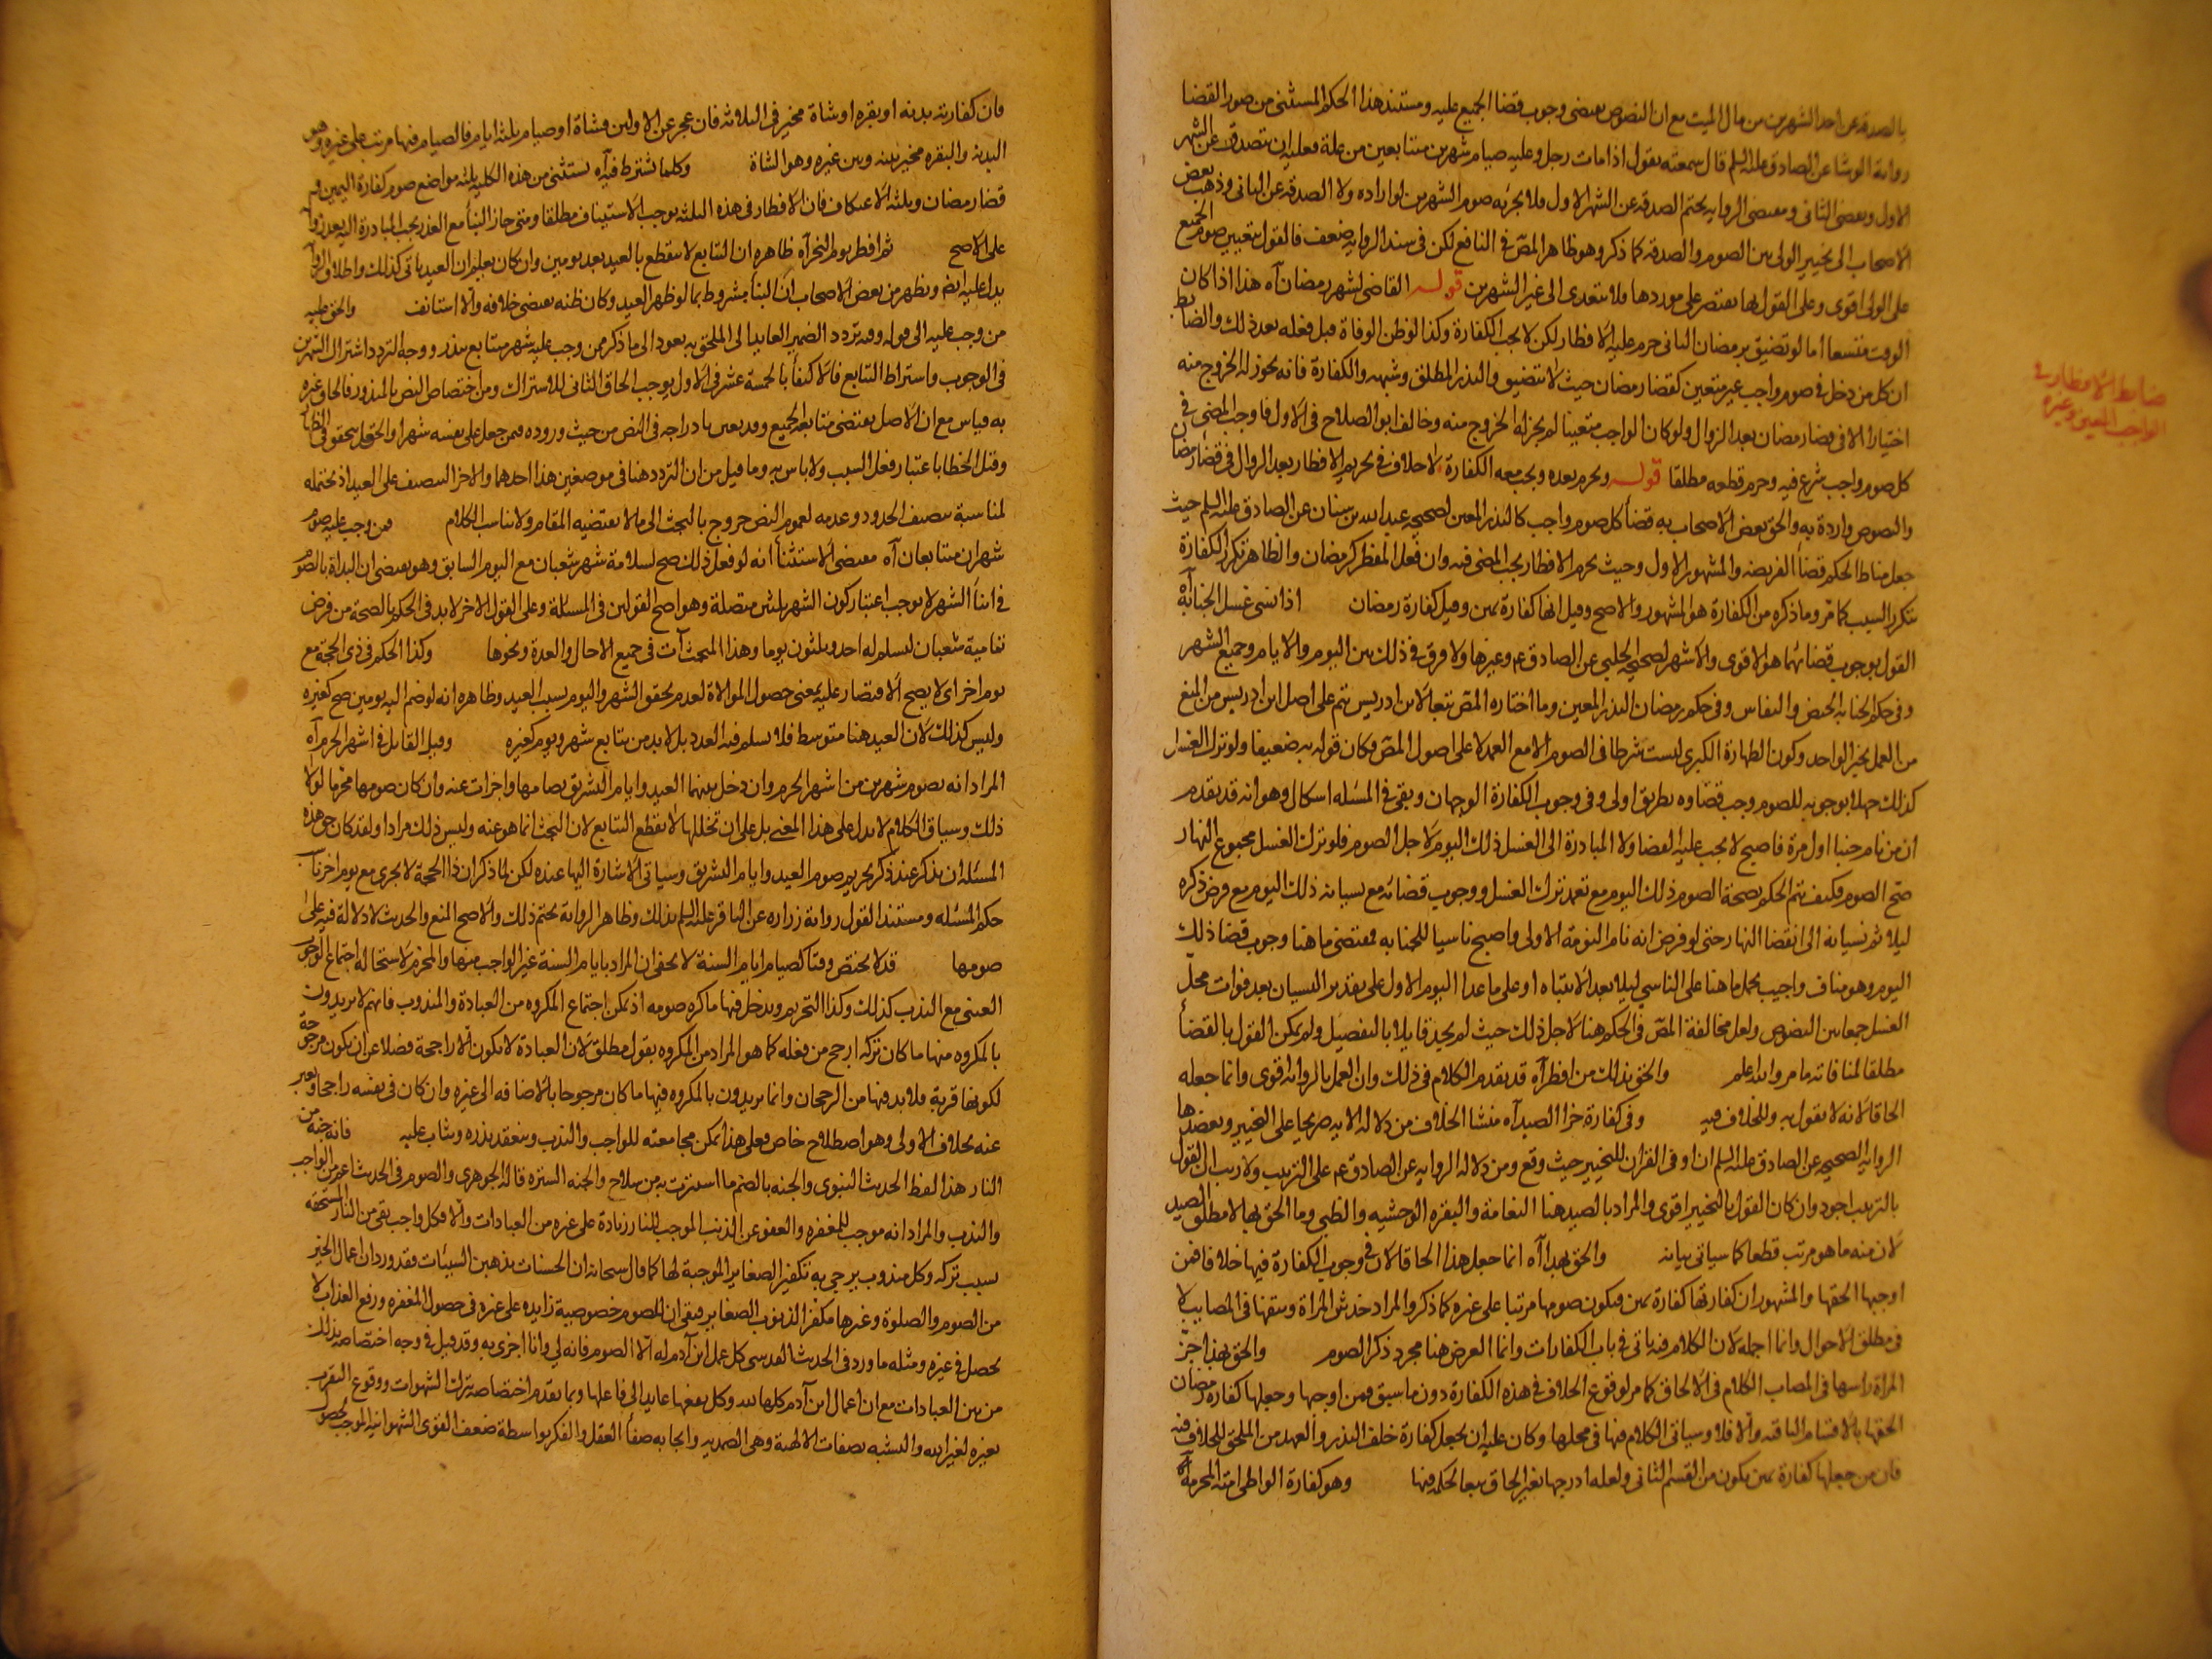 بالصدقة عن احد الشهرين من مال الميت مع ان النصوص يقتضى وجوب قضا الجميع عليه ومستند هذا الحكم المستثنى من صور القضا
رواية الوشا عن الصادق عليه السلم قال سمعته يقول اذا مات رجل وعليه صيام شهرين متتابعين من علة فعليه ان يتصدق عن الشهر
الاول ويقضى الثانى ومقتضى الرواية تحتم الصدقة عن الشهر الاول فلا يجزيه صوم الشهرين لو اراده ولا الصدقة عن الثانى وذهب بعض
الاصحاب الى تخيير الولى بين الصوم والصدقة كما ذكر وهو ظاهر المص فى النافع لكن فى سند الرواية ضعف فالقول بتعيين صوم الجميع
على الولى اقوى وعلى القول بها يقتصر على موردها فلا يتعدى الى غير الشهرين قوله القاضى لشهر رمضان آه هذا اذا كان
الوقت متسعا اما لو تضيق برمضان الثانى حرم عليه الافطار لكن لا يجب الكفارة وكذا لو ظن الوفاة قبل فعله بعد ذلك والضابط
ان كل من دخل فى صوم واجب غير متعين كقضا رمضان حيث لا يتضيق والنذر المطلق وشبهه والكفارة فانه يجوز له الخروج منه
اختيارا الا فى قضا رمضان بعد الزوال ولو كان الواجب متعينا لم يجز له الخروج منه وخالف ابو الصلاح فى الاول فاوجب المضى فى
كل صوم واجب شرع فيه وحرم قطعه مطلقا قوله ويحرم بعده ويجب معه الكفارة لا خلاف فى تحريم الافطار بعد الزوال فى قضا رمضان
والنصوص واردة به والحق بعض الاصحاب به قضأ كل صوم واجب كالنذر المعين لصحيحة عبد الله بن سنان عن الصادق عليه السلم حيث
جعل مناط الحكم قضأ الفريضة والمشهور الاول وحيث يحرم الافطار يجب المضى فيه وان فعل المفطر كرمضان والظاهر تكرر الكفارة
بتكرر السبب كما مر وما ذكره من الكفارة هو المشهور والاصح وقيل انها كفارة يمين وقيل كفارة رمضان اذا نسى غسل الجنابة آه
القول بوجوب قضائهما هو الاقوى والاشهر لصحيحة الحلبى عن الصادق ع وغيرها ولا فرق فى ذلك بين اليوم والايام وجميع الشهر
وفى حكم الجنابة الحيض والنفاس وفى حكم رمضان النذر المعين وما اختاره المص تبعا لابن ادريس يتم على اصل ابن ادريس من المنع
من العمل بخبر الواحد وكون الطهارة الكبرى ليست شرطا فى الصوم الا مع العمد لا على اصول المص فكان قوله به ضعيفا ولو ترك الغسل
كذلك جهلا بوجوبه للصوم وجب قضاوه بطريق اولى وفى وجوب الكفارة الوجهان وبقى فى المسئلة اشكال وهو انه قد تقدم
ان من نام جنبا اول مرة فاصبح لا يجب عليه القضا ولا المبادرة الى الغسل ذلك اليوم لاجل الصوم فلو ترك الغسل مجموع النهار
صح الصوم فكيف يتم الحكم بصحة الصوم ذلك اليوم مع تعمد ترك الغسل ووجوب قضائه مع نسيانه ذلك اليوم مع فرض ذكره
ليلا ثم نسيانه الى انقضا النهار حتى لو فرض انه نام النومة الاولى واصبح ناسيا للجنابة فمقتضى ما هنا وجوب قضا ذلك
اليوم وهو مناف واجيب بحمل ما هنا على الناسى ليلا بعد الانتباه او على ما عدا اليوم الاول على تقدير النسيان بعد فوات محل
الغسل جمعا بين النصوص ولعل مخالفة المص فى الحكم هنا لاجل ذلك حيث لم يجد قايلا بالتفصيل ولم يمكن القول بالقضأ
مطلقا لمنافاته ما مر والله اعلم والحق بذلك من افطر آه قد تقدم الكلام فى ذلك وان العمل بالرواية اقوى وانما جعله
الحاقا لانه لا يقول به وللخلاف فيه وفى كفارة جزا الصيد آه منشا الخلاف من دلالة الاية صريحا على التخيير ويعضدها
الرواية الصحيحة عن الصادق عليه السلم ان او فى القران للتخيير حيث وقع ومن دلالة الرواية عن الصادق ع على الترتيب ولا ريب ان القول
بالترتيب اجود وان كان القول بالتخيير اقوى والمراد بالصيد هنا النعامة والبقرة الوحشية والظبى وما الحق بها لا مطلق الصيد
لان منه ما هو مرتب قطعا كما سياتى بيانه والحق بهذا آه انما جعل هذا الحاقا لان فى وجوب الكفارة فيها خلافا فمن
اوجبها الحقها والمشهور ان كفارتها كفارة يمين فيكون صومها مرتبا على غيره كما ذكر والمراد خدش المراة ونتفها فى المصايب لا
فى مطلق الاحوال وانما اجمله لان الكلام فيه ياتى فى باب الكفارات وانما الغرض هنا مجرد ذكر الصوم والحق بهذا جز
المراة راسها فى المصاب الكلام فى الالحاق كما مر لوقوع الخلاف فى هذه الكفارة دون ما سبق فمن اوجبها وجعلها كفارة رمضان
الحقها بالاقسام الباقية والا فلا وسياتى الكلام فيها فى محلها وكان عليه ان يجعل كفارة خلف النذر والعهد من الملحق للخلاف فيه
فان من جعلها كفارة يمين يكون من القسم الثانى ولعله ادرجها بغير الحاق تبعا لحكمه فيها وهو كفارة الواطى امته المحرمة آه
ضابط الافطار فى
الواجب المعين وغيره
فان كفارته بدنة او بقرة او شاة مخير فى الثلاثة فان عجز عن الاولين فشاة او صيام ثلثة ايام فالصيام فيها مرتب على غيره وهو
البدنة والبقرة مخير بينه وبين غيره وهو الشاة وكلما يشترط فيه آه يستثنى من هذه الكلية ثلثة مواضع صوم كفارة اليمين و
قضا رمضان وثلثة الاعتكاف فان الافطار فى هذه الثلثة يوجب الاستيناف مطلقا ومتى جاز البنأ مع العذر يجب المبادرة اليه بعد زواله
على الاصح ثم افطر يوم النحر آه ظاهره ان التتابع لا ينقطع بالعيد بعد يومين وان كان يعلم ان العيد ياتى كذلك واطلاق الرواية
يدل عليه ايضا ويظهر من بعض الاصحاب ان البنأ مشروط بما لو ظهر العيد وكان ظنه يقتضى خلافه والا استانف والحق به
من وجب عليه الى قوله وفيه تردد الضمير العايد الى الملحق به يعود الى ما ذكر ممن وجب عليه شهر متتابع بنذر ووجه التردد اشتراك الشهرين
فى الوجوب واشتراط التتابع فالاكتفأ بالخمسة عشر فى الاول يوجب الحاق الثانى للاشتراك ومن اختصاص النص بالمنذور فالحاق غيره
به قياس مع ان الاصل يقتضى متابعة الجميع وقد يعين بادراجه فى النص من حيث وروده فيمن جعل على نفسه شهرا والحق يتحقق فى الظهار
وقتل الخطا باعتبار فعل السبب ولا باس به وما قيل من ان التردد هنا فى موضعين هذا احدهما والاخر التنصيف على العبد اذ يحتمله
لمناسبة تنصيف الحدود وعدمه لعموم النص خروج بالبحث الى ما لا يقتضيه المقام ولا يناسب الكلام فمن وجب عليه صوم
شهران متتابعان آه مقتضى الاستثنأ انه لو فعل ذلك صح لسلامة شهر شعبان مع اليوم السابق وهو يقتضى ان البداة بالصوم
فى اثنأ الشهر لا يوجب اعتبار كون الشهر ثلثين متصلة وهو اصح القولين فى المسئلة وعلى القول الاخر لا بد فى الحكم بالصحة من فرض
تمامية شعبان ليسلم له احد وثلثون يوما وهذا المبحث آت فى جميع الاجال والعدة ونحوها وكذا الحكم فى ذى الحجة مع
يوم اخر اى لا يصح الاقتصار عليه بمعنى حصول الموالاة لعدم تحقق الشهر واليوم بسبب العيد وظاهره انه لو ضم اليه يومين صح كغيره
وليس كذلك لان العيد هنا متوسط فلا يسلم فيه العدد بل لا بد من تتابع شهر ويوم كغيره وقيل القاتل فى اشهر الحرم آه
المراد انه يصوم شهرين من اشهر الحرم وان دخل بينهما العيد وايام التشريق يصامها واجزات عنه وان كان صومها محرما لولا
ذلك وسياق الكلام لا يدل على هذا المعنى بل على ان تخللها لا يقطع التتابع لان البحث انما هو عنه وليس ذلك مرادا ولقد كان حق هذه
المسئلة ان يذكر عند ذكر تحريم صوم العيد وايام التشريق وسياتى الاشارة اليها عنده لكن لما ذكر ان ذا الحجة لا يجزى مع يوم اخر
حكم المسئلة ومستند القول رواية زرارة عن الباقر عليه السلم بذلك وظاهر الرواية تحتم ذلك والاصح المنع والحديث لا دلالة فيه على
صومها قد لا يختص وقتا كصيام ايام السنة لا يخفى ان المراد بايام السنة غير الواجب منها والمحرم لاستحالة اجتماع الوجوب
العينى مع الندب كذلك وكذا التحريم ويدخل فيها ما كره صومه اذ يمكن اجتماع المكروه من العبادة والمندوب فانهم لا يريدون
بالمكروه منها ما كان تركه ارجح من فعله كما هو المراد من المكروه بقول مطلق لان العبادة لا يكون الا راجحة فضلا عن ان يكون مرجوحة
لكونها قربة فلا بد فيها من الرجحان وانما يريدون بالمكروه فيها ما كان مرجوحا بالاضافه الى غيره وان كان فى نفسه راجحا ويعبر
عنه بخلاف الاولى وهو اصطلاح خاص فعلى هذا يمكن مجامعته للواجب والندب وينعقد نذره ويثاب عليه فانه جنة من
النار هذا لفظ الحديث النبوى والجنة بالضم ما استترت به من سلاح والجنة السترة قاله الجوهرى والصوم فى الحديث اعم من الواجب
والندب والمراد انه موجب للمغفرة والعفو عن الذنب الموجب للنار زيادة على غيره من العبادات والا فكل واجب يقى من النار المستحقة
بسبب تركه وكل مندوب يرجى به تكفير الصغاير الموجبة لها كما قال سبحانه ان الحسنات يذهبن السيئات فقد ورد ان اعمال الخير
من الصوم والصلوة وغيرها مكفر الذنوب الصغاير فبقى ان للصوم خصوصية زايدة على غيره فى حصول المغفرة ورفع العذاب لا
تحصل فى غيره ومثله ما ورد فى الحديث القدسى كل عمل ابن آدم له الا الصوم فانه لى وانا اجزى به وقد قيل فى وجه اختصاصه بذلك
من بين العبادات مع ان اعمال ابن آدم كلها لله وكل نفعها عايد الى فاعلها وبما تقدم اختصاصه بترك الشهوات ووقوع التقرب
بغيره لغير الله والتشبه بصفات الالهية وهى الصمدية وايجابه صفأ العقل والفكر بواسطة ضعف القوى الشهوانية الموجب لحصول